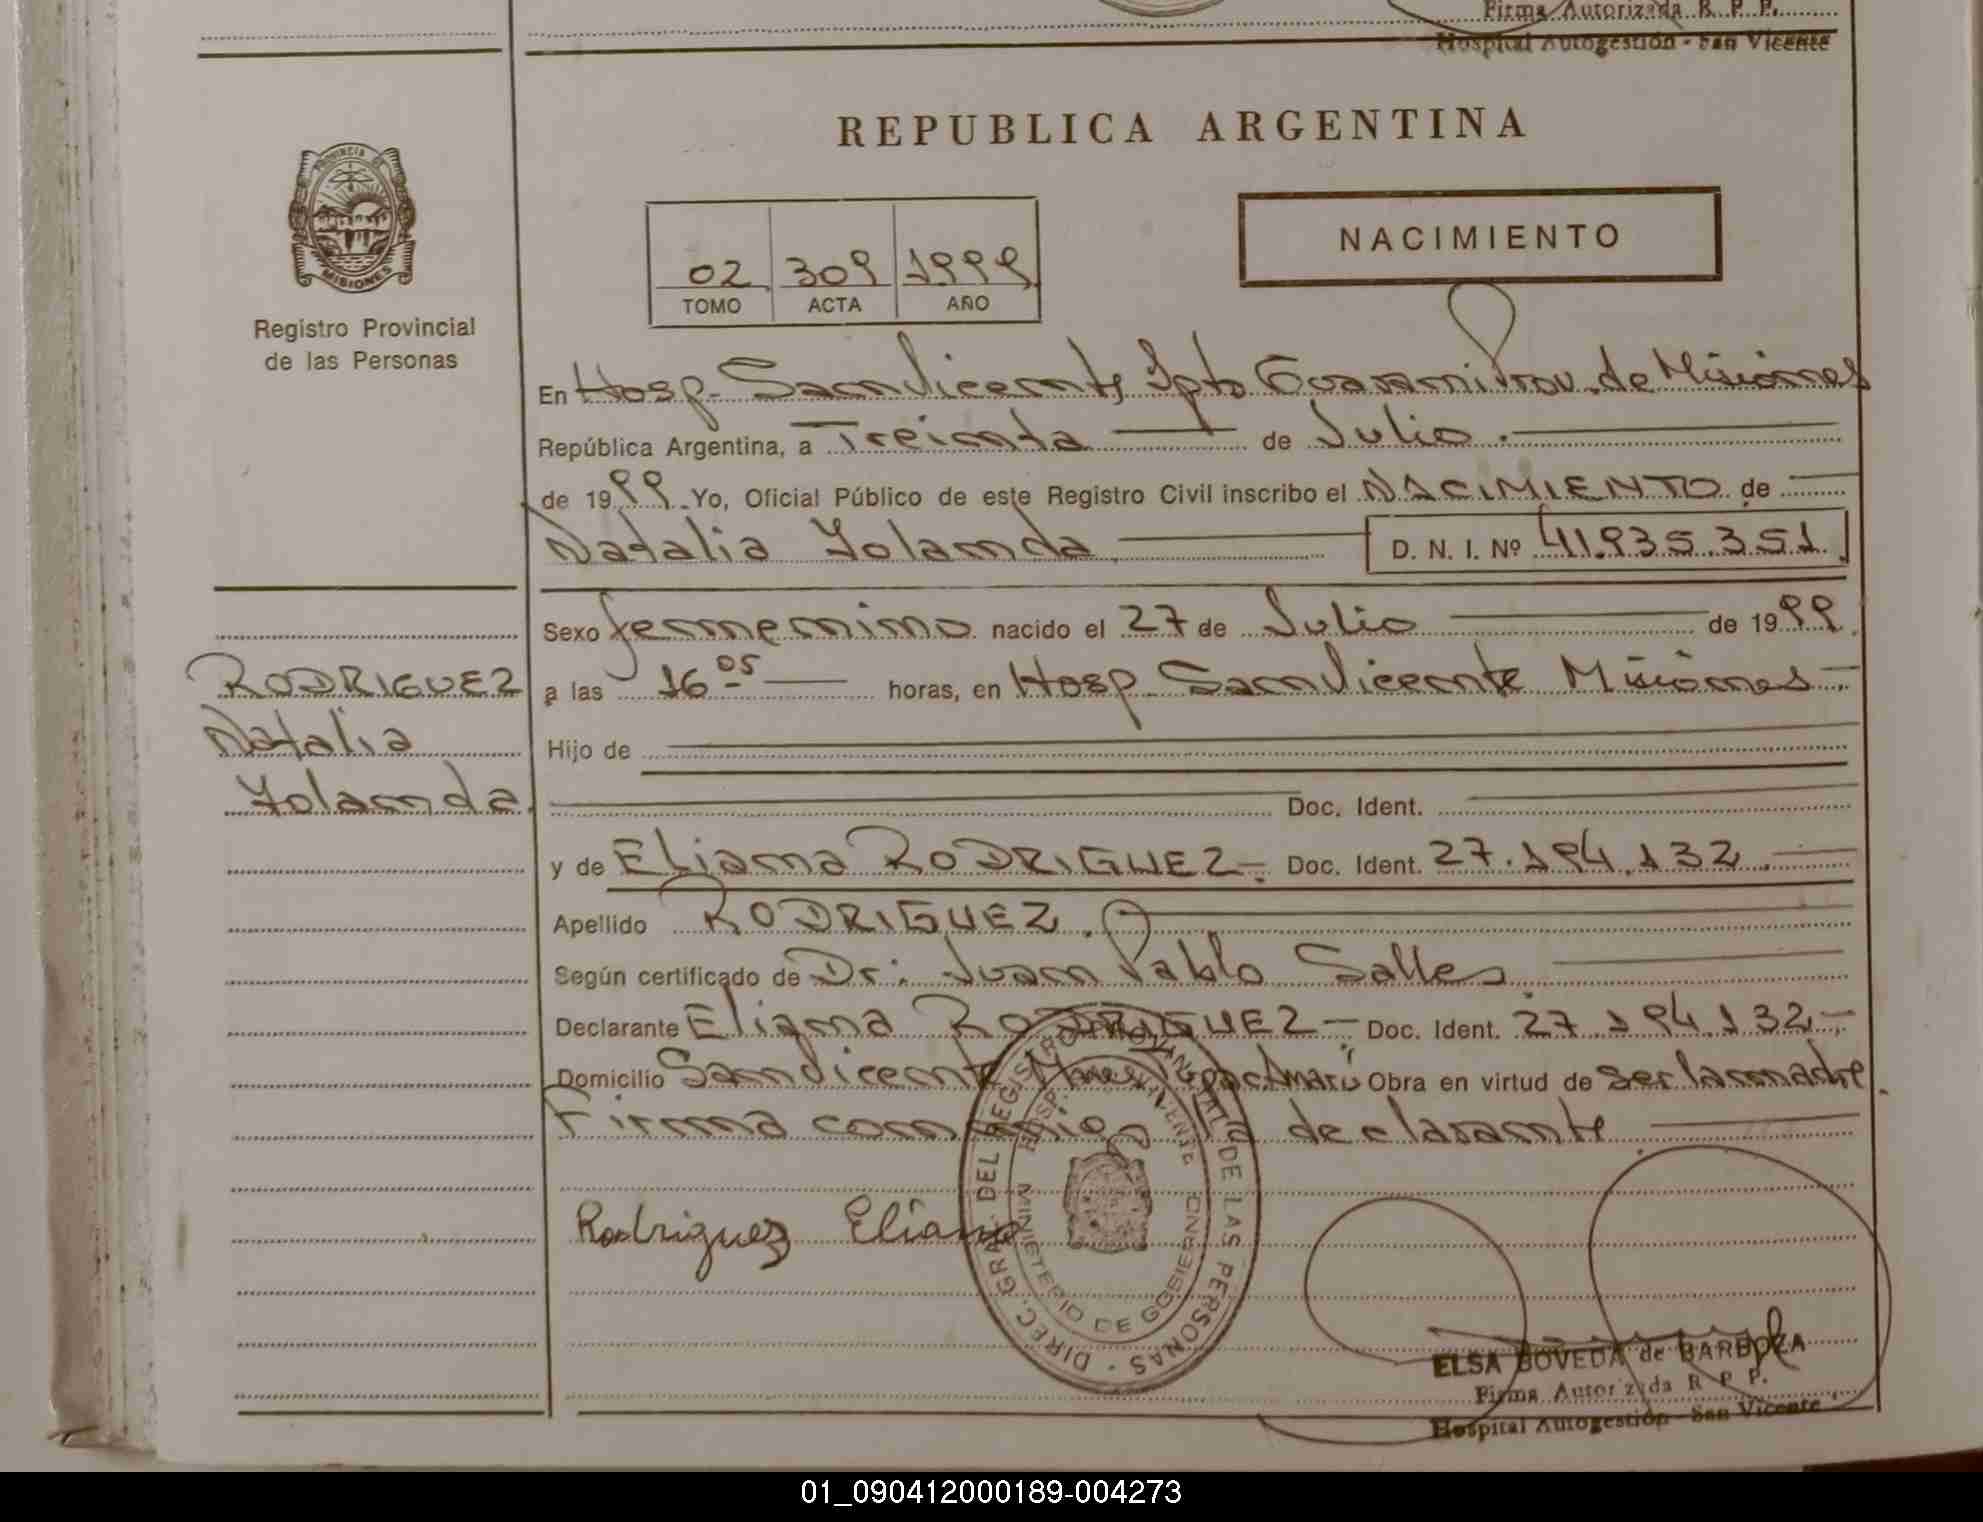 Firma Autorizada R. P. P.
Hospital Autogestión - San Vicente
REPUBLICA ARGENTINA
PROVINCIA DE
MISIONES
Registro Provincial
de las Personas
02 309 1999
TOMO ACTA AÑO
NACIMIENTO
En Hosp. San Vicente, Dpto Guarani Prov. de Misiones
República Argentina, a Treinta de Julio.
de 1999 Yo, Oficial Público de este Registro Civil inscribo el NACIMIENTO de
Natalia Yolanda D. N. I. Nº 41.935.351.
Sexo femenino nacido el 27 de Julio de 1999.
RODRIGUEZ
Natalia
Yolanda.
a las 16 05 horas, en Hosp. San Vicente Misiones
Hijo de
Doc. Ident.
y de Eliana RODRIGUEZ. Doc. Ident. 27.194.132.
Apellido RODRIGUEZ.
Según certificado de Dr: Juan Pablo Salles
Declarante Eliana RODRIGUEZ Doc. Ident. 27.194.132
Domicilio San Vicente Mnes Tupac Amarú Obra en virtud de ser la madre.
Firma conmigo la declarante
Rodriguez Eliana
DIREC. GRAL. DEL REGISTRO PROVINCIAL DE LAS PERSONAS
HOSP. SAN VICENTE
MINISTERIO DE GOBIERNO
ELSA BOVEDA de BARBOZA
Firma Autorizada R. P. P.
Hospital Autogestión - San Vicente
01_090412000189-004273